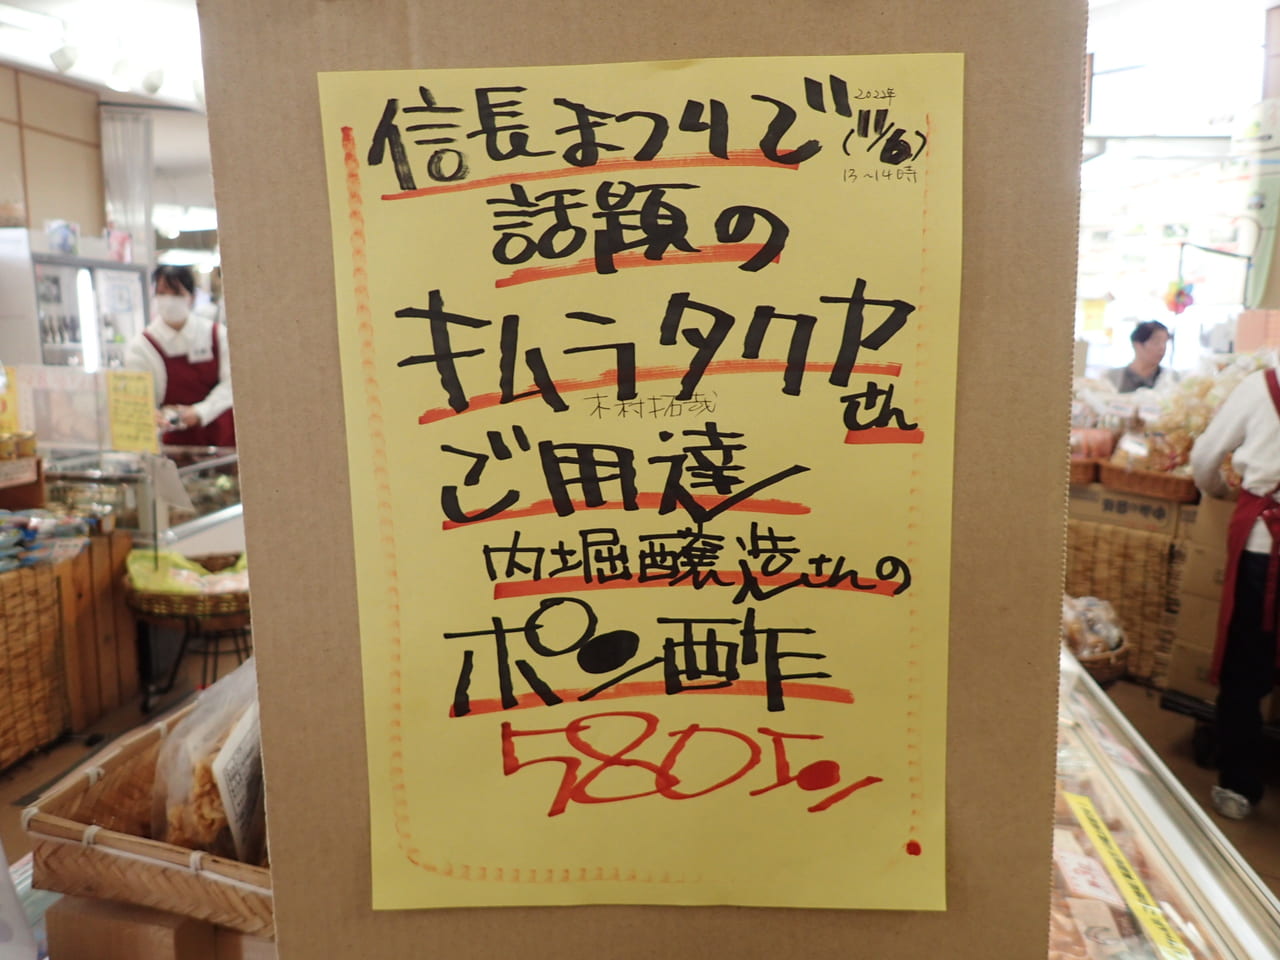 信長まつりで
2022年
(11/6)
13~14時
話題の
キムラタクヤ
さん
木村拓哉
ご用達
内堀醸造さんの
ポン酢
580エン